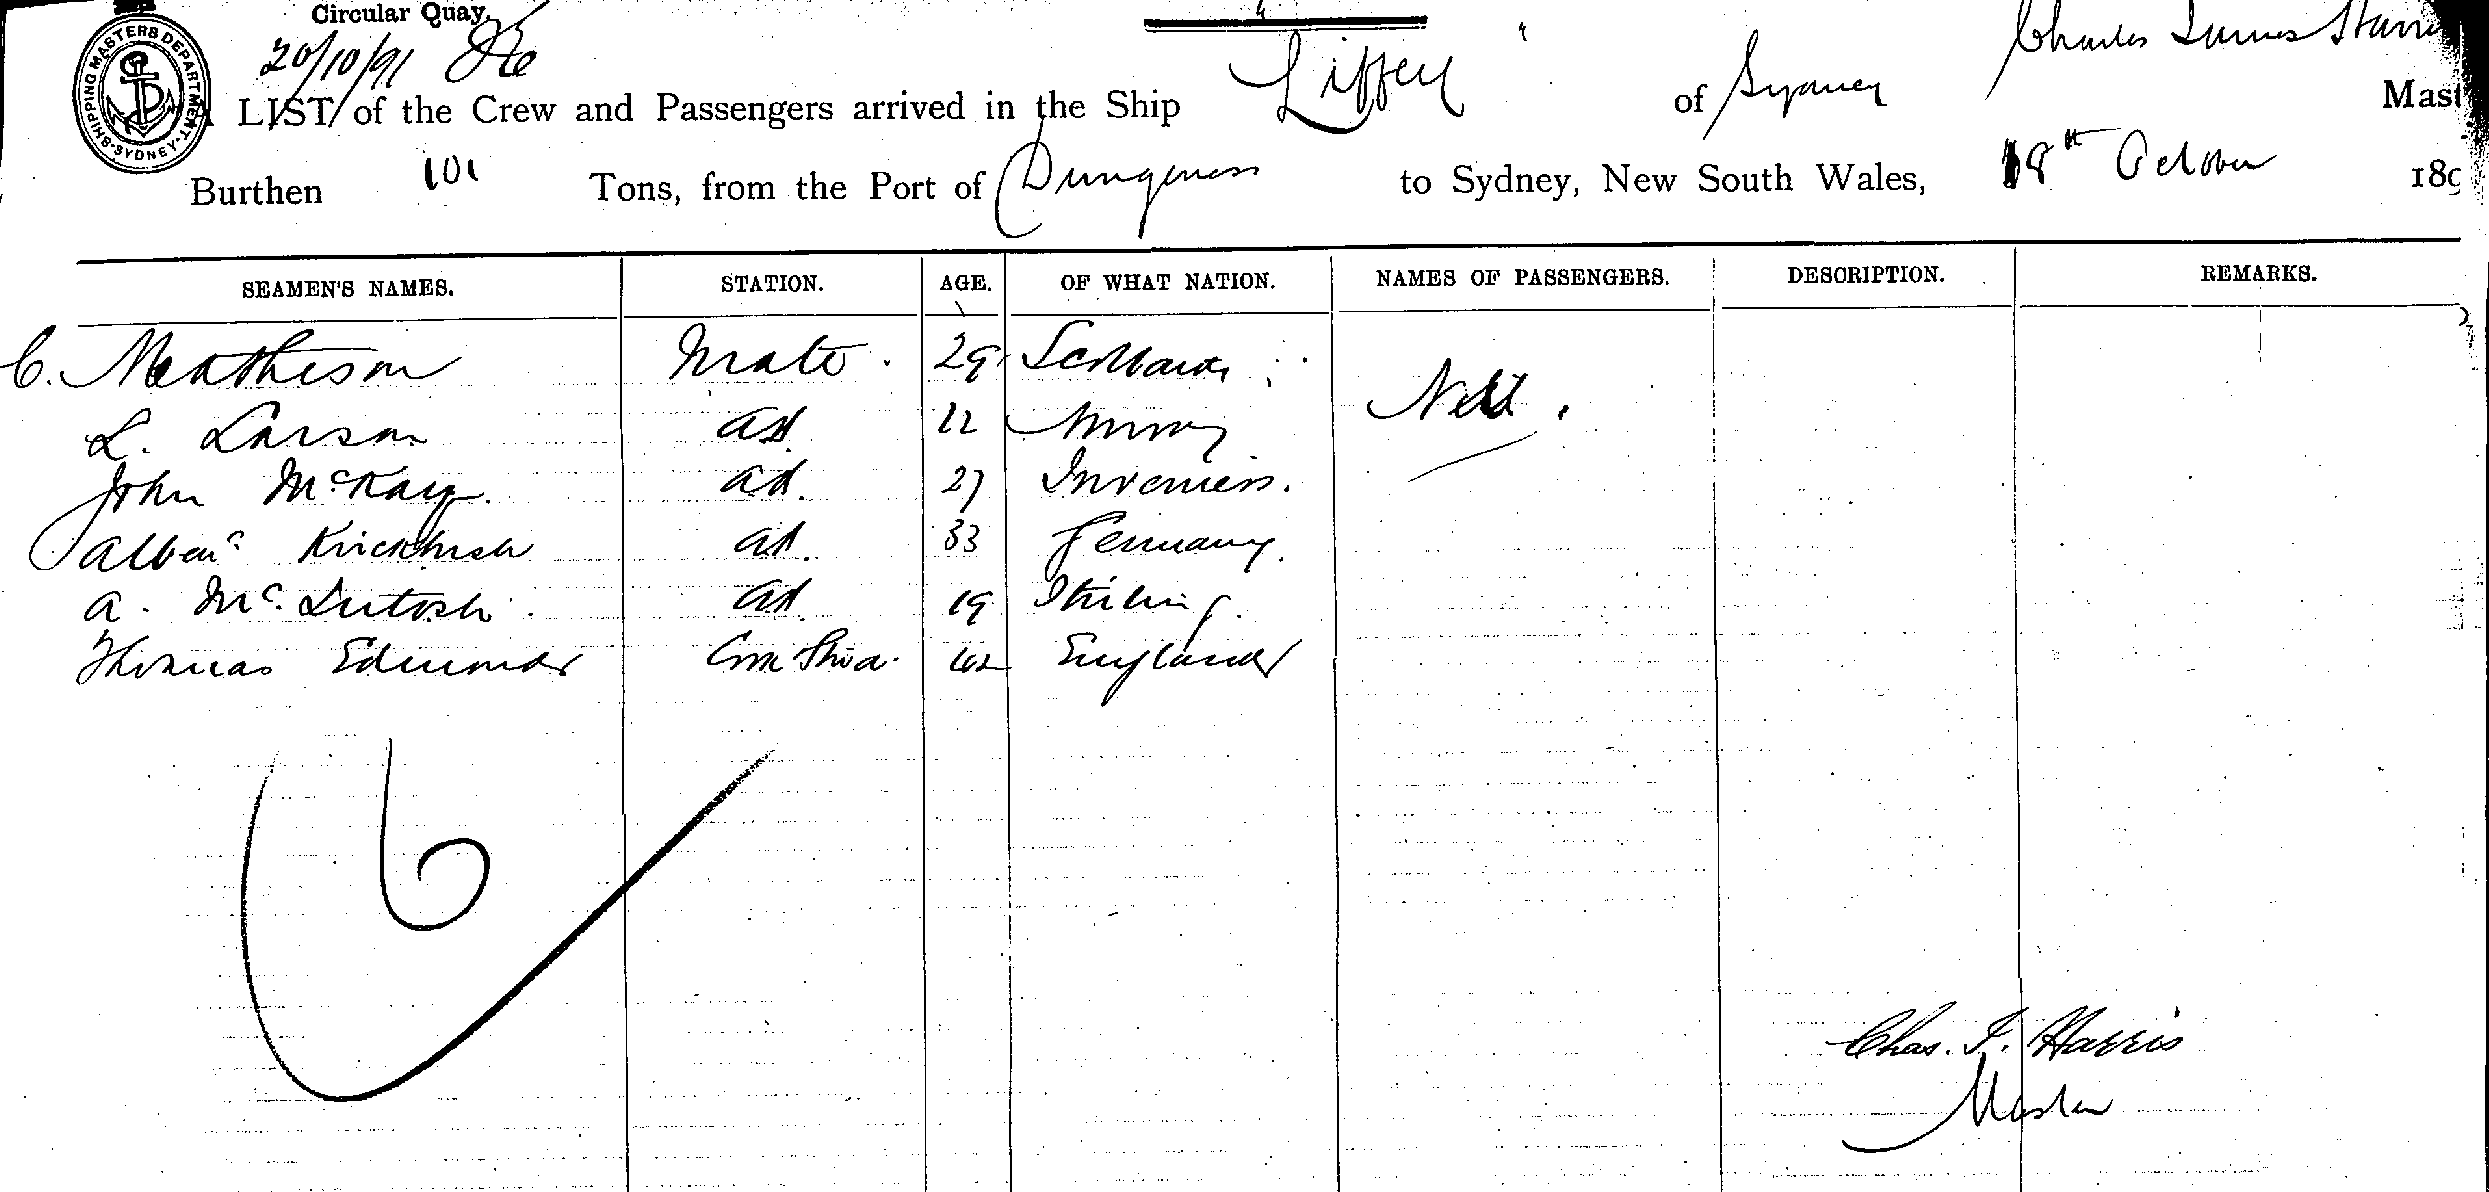 Circular Quay,
20/10/91
SHIPPING MASTERS DEPARTMENT. SYDNEY.
Charles James Harris
A LIST of the Crew and Passengers arrived in the Ship "Liffey" of Sydney Mast
Burthen 101 Tons, from the Port of Dungeness to Sydney, New South Wales, 18th October 189
SEAMEN'S NAMES. STATION. AGE. OF WHAT NATION. NAMES OF PASSENGERS. DESCRIPTION. REMARKS.
C. Matheson Mate. 29 Scotland Nil.
L. Larson AB. 22 Norway
John McKay. AB. 27 Inverness.
AB. 33 Germany.
A. McIntosh AB 19 Stirling.
Thomas Edmonds 42 England
6
Chas. J. Harris
Master